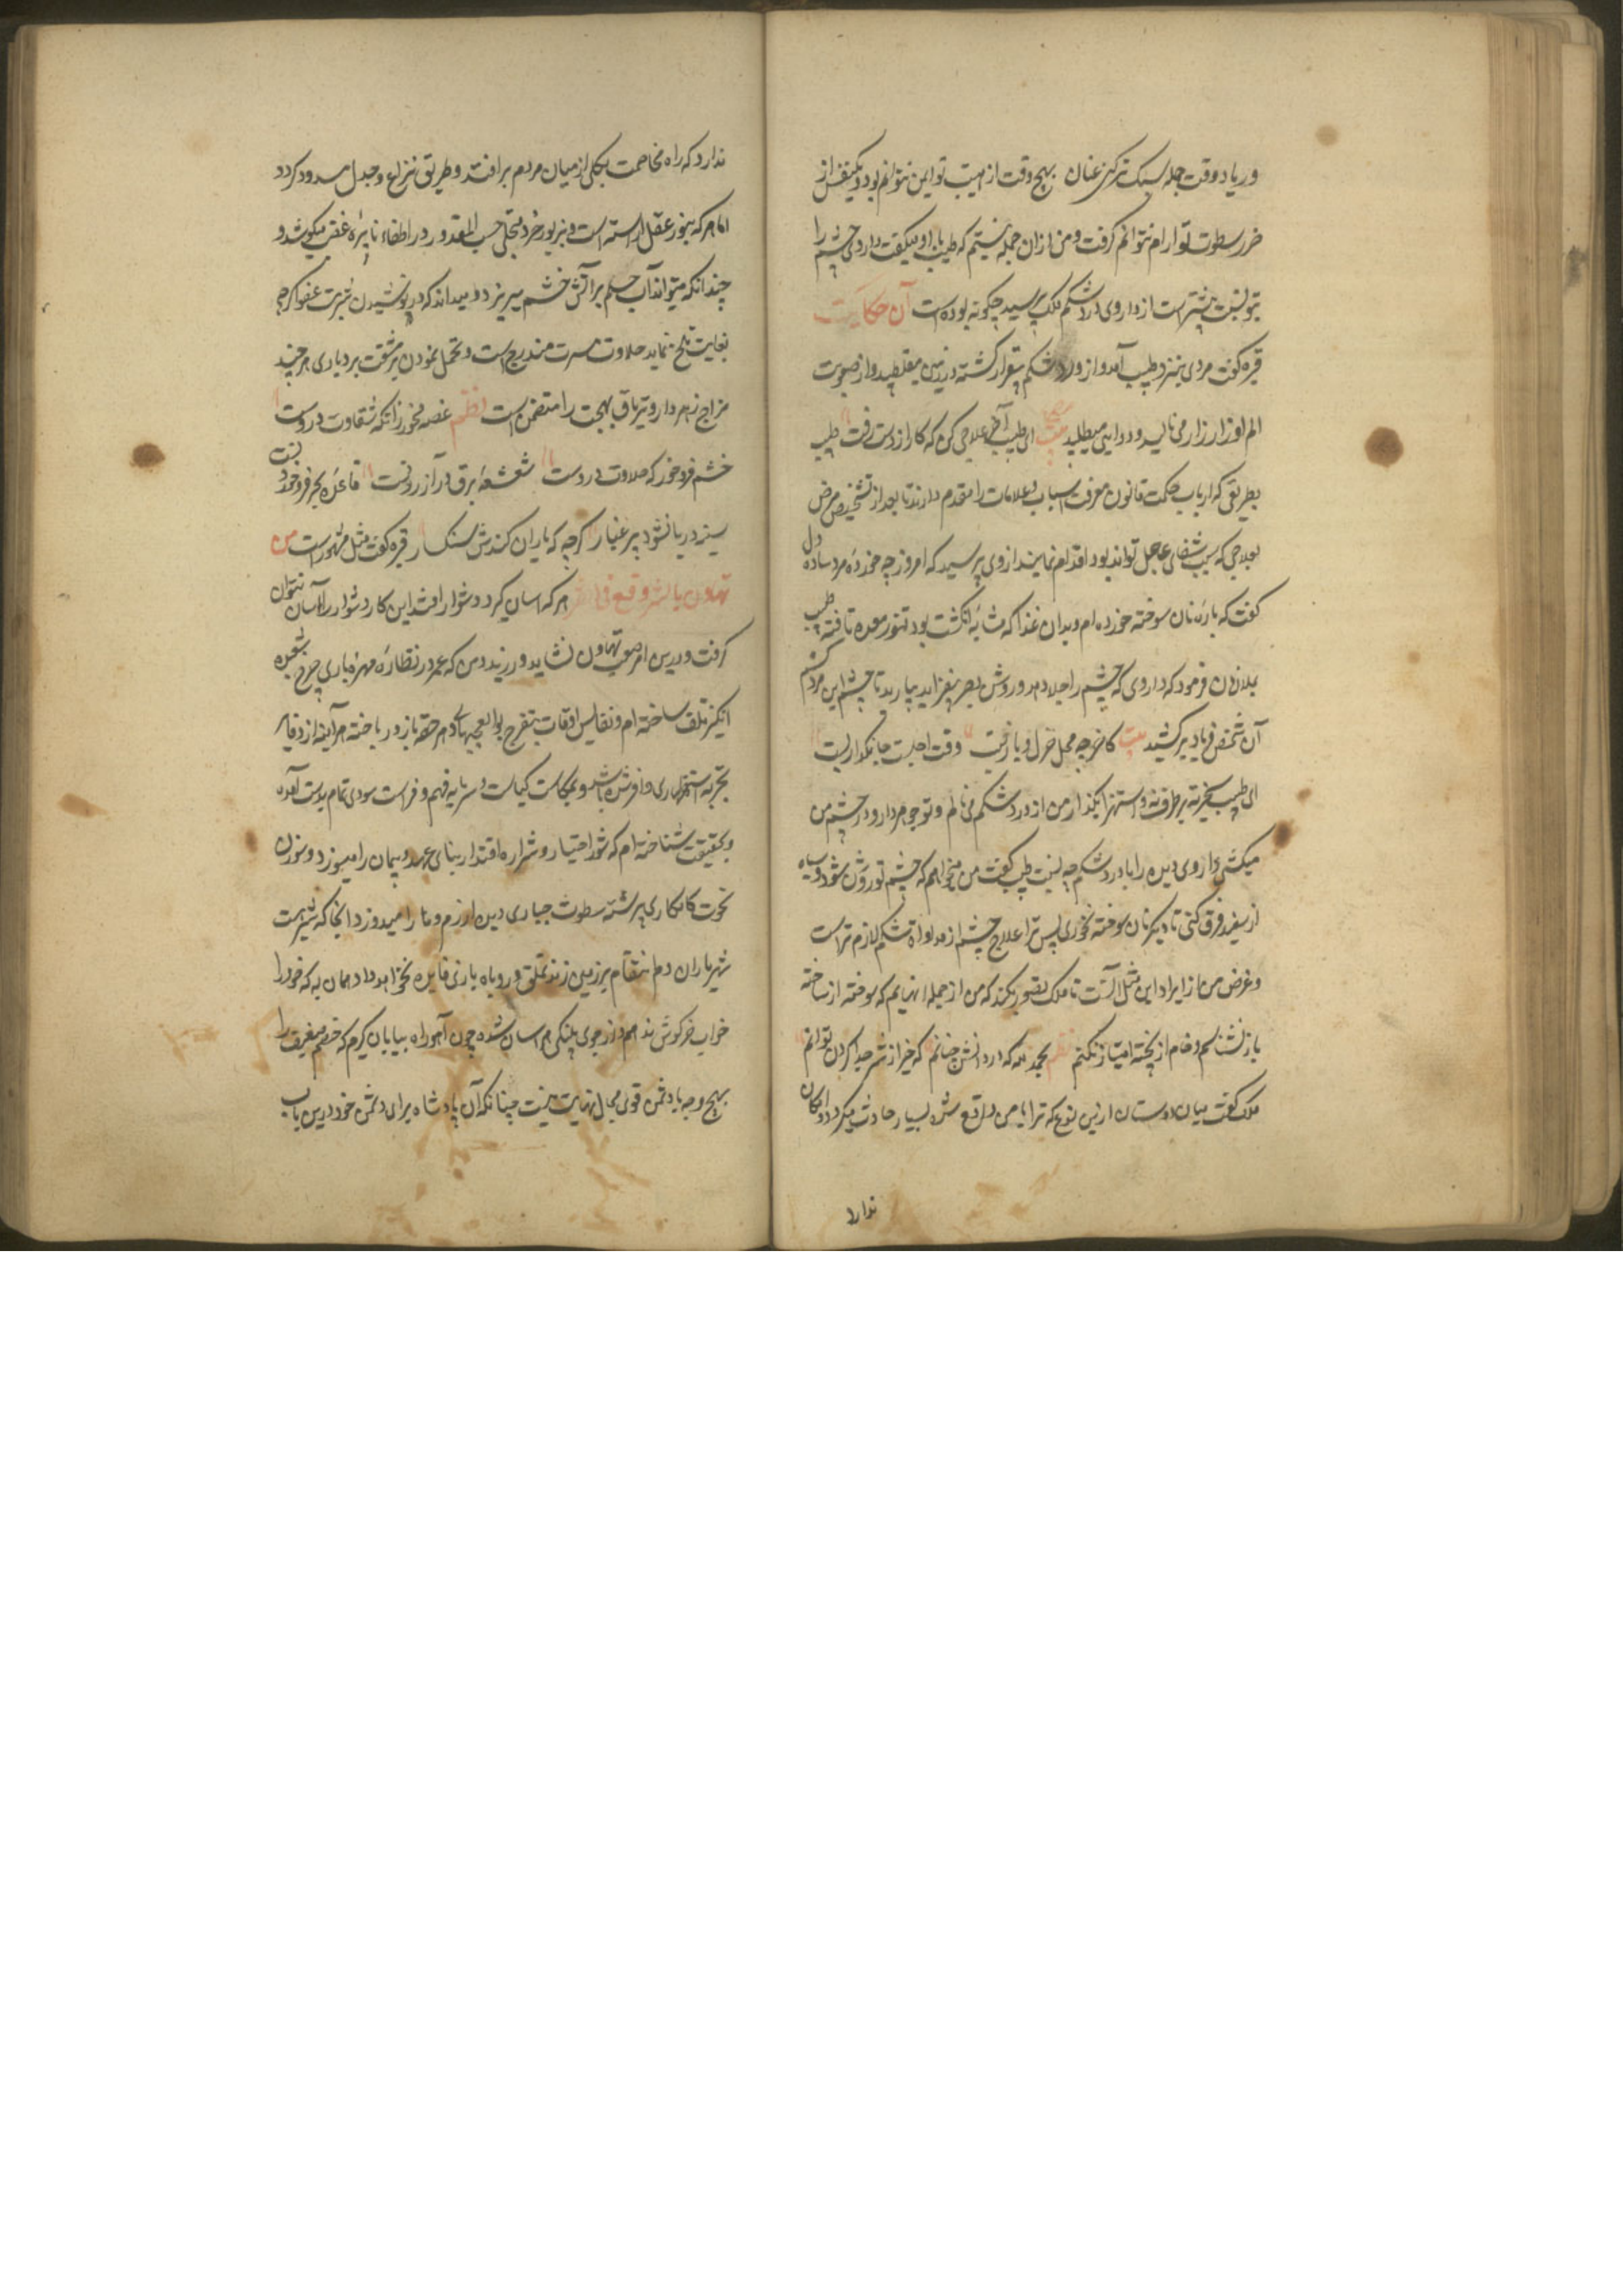 در یاد وقت حمله سبک ترکنی عنان بهیچ وقت از هیبت تو ایمن نتوانم بود و یکنفس از
ضرر سطوت تو آرام نتوانم گرفت و من از آن جمله نیستم که طبیب با او میگفت داروی چشم را
بتو نسبت بیشتر است از داروی درد شکم ملک پرسید چگونه بوده است آن حکایت
قبره گفت مردی بنزد طبیب آمد و از درد شکم بیقرار گشته در زمین میغلطید و از صعوبت
الم او زار زار می نالید و دوایی میطلبید بیت ای طبیب آخر علاجی کن که کار از دست رفت طبیب
بطریقی که ارباب حکمت قانون معرفت اسباب و علامات را مقدم دارند تا بعد از تشخیص مرض
بعلاجی که سبب شفای عاجل تواند بود اقدام نمایند از وی پرسید که امروز چه خوردهٔ مرد ساده دل
گفت که پارهٔ نان سوخته خورده ام و بدان غذا که مشابه انگشت بود تنور معده تافته طبیب
بملازمان فرمود که داروی که چشم را جلا دهد و روشنی بصر بیفزاید بیارید تا چشم این مرد کشم
آن شخص فریاد برکشید بیت کاخر چه محل هزل و بازیست وقت اجلست جانگدازیست
ای طبیب سخریه بر طرف نه و استهزا بگذار من از درد شکم می نالم و تو جوهر دارو در چشم من
میکشی داروی دیده را با درد شکم چه نسبت طبیب گفت من میخواهم که چشم تو روشن شود و سیاه
از سفید فرق کنی تا دیگر نان سوخته نخوری پس ترا علاج چشم از مداواة شکم لازم تر است
و غرض من از ایراد این مثل آنست تا ملک تصور نکند که من از جمله آنهایم که سوخته از ساخته
باز نشناسم و خام از پخته امتیاز نکنم نظم بحمد الله که در دانش چنانم که خیر از شر جدا کردن توانم
ملک گفت میان دوستان ازین نوع که ترا با من واقع شده بسیار حادث میگردد و امکان
ندارد
ندارد که راه مخاصمت بکلی از میان مردم برافتد و طریق نزاع و جدل مسدود گردد
اما هر که بنور عقل آراسته است و بزیور خرد متجلی حسب المقدور در اطفاء نایرهٔ غضب میکوشد و
چندانکه میتواند آب حلم بر آتش خشم میریزد و میداند که در نوشیدن شربت عفو اگرچه
بغایت تلخ نماید حلاوت مسرت مندرج است و تحمل نمودن بر مشقت بردباری هر چند
مزاج زهر دارد تریاق بهجت را متضمن است نظم غصه مخور زانکه شقاوت دروست
خشم فرو خور که حلاوت دروست شعشعهٔ برق در آزرد نیست قاعدهٔ بحر فرو خورد نیست
سینه دریا نشود پر غبار گرچه که باران کندش سنگ سار قبره گفت مثل مشهور است من
تهاون بالشر وقع فی الشر هر که آسان گیرد دشوار افتد این کار دشوار را آسان نتوان
گرفت و درین امر صعب تهاون نشاید ورزید و من که عمر در نظاره مهره بازی چرخ شعبده
انگیز تلف ساخته ام و نفایس اوقات بتفرج بوالعجبیهای دهر حقه باز در باخته هر آینه از ذخایر
تجربه استظهاری وافر شده باشد و بمکاست کیاست و سرمایه فهم و فراست سودی تمام بدست آمده
و بحقیقت شناخته ام که شور اختیار و شراره اقتدار بنای عهد و پیمان را میسوزد و سوزن
نخوت کامکاری برشته سطوت جباری دیده آزرم و وفا را میدوزد آنجا که شیر همت
شهریاران دم انتقام بر زمین زند تملق و روباه بازی فایده نخواهد داد همان به که خود را
خواب خرگوش ندهم و از خوی پلنگی هراسان شده چون آهو راه بیابان گیرم که خصم ضعیف را
بهیچ وجه با دشمن قوی مجال نهایت نیست چنانکه آن پادشاه برای دشمن خود درین باب